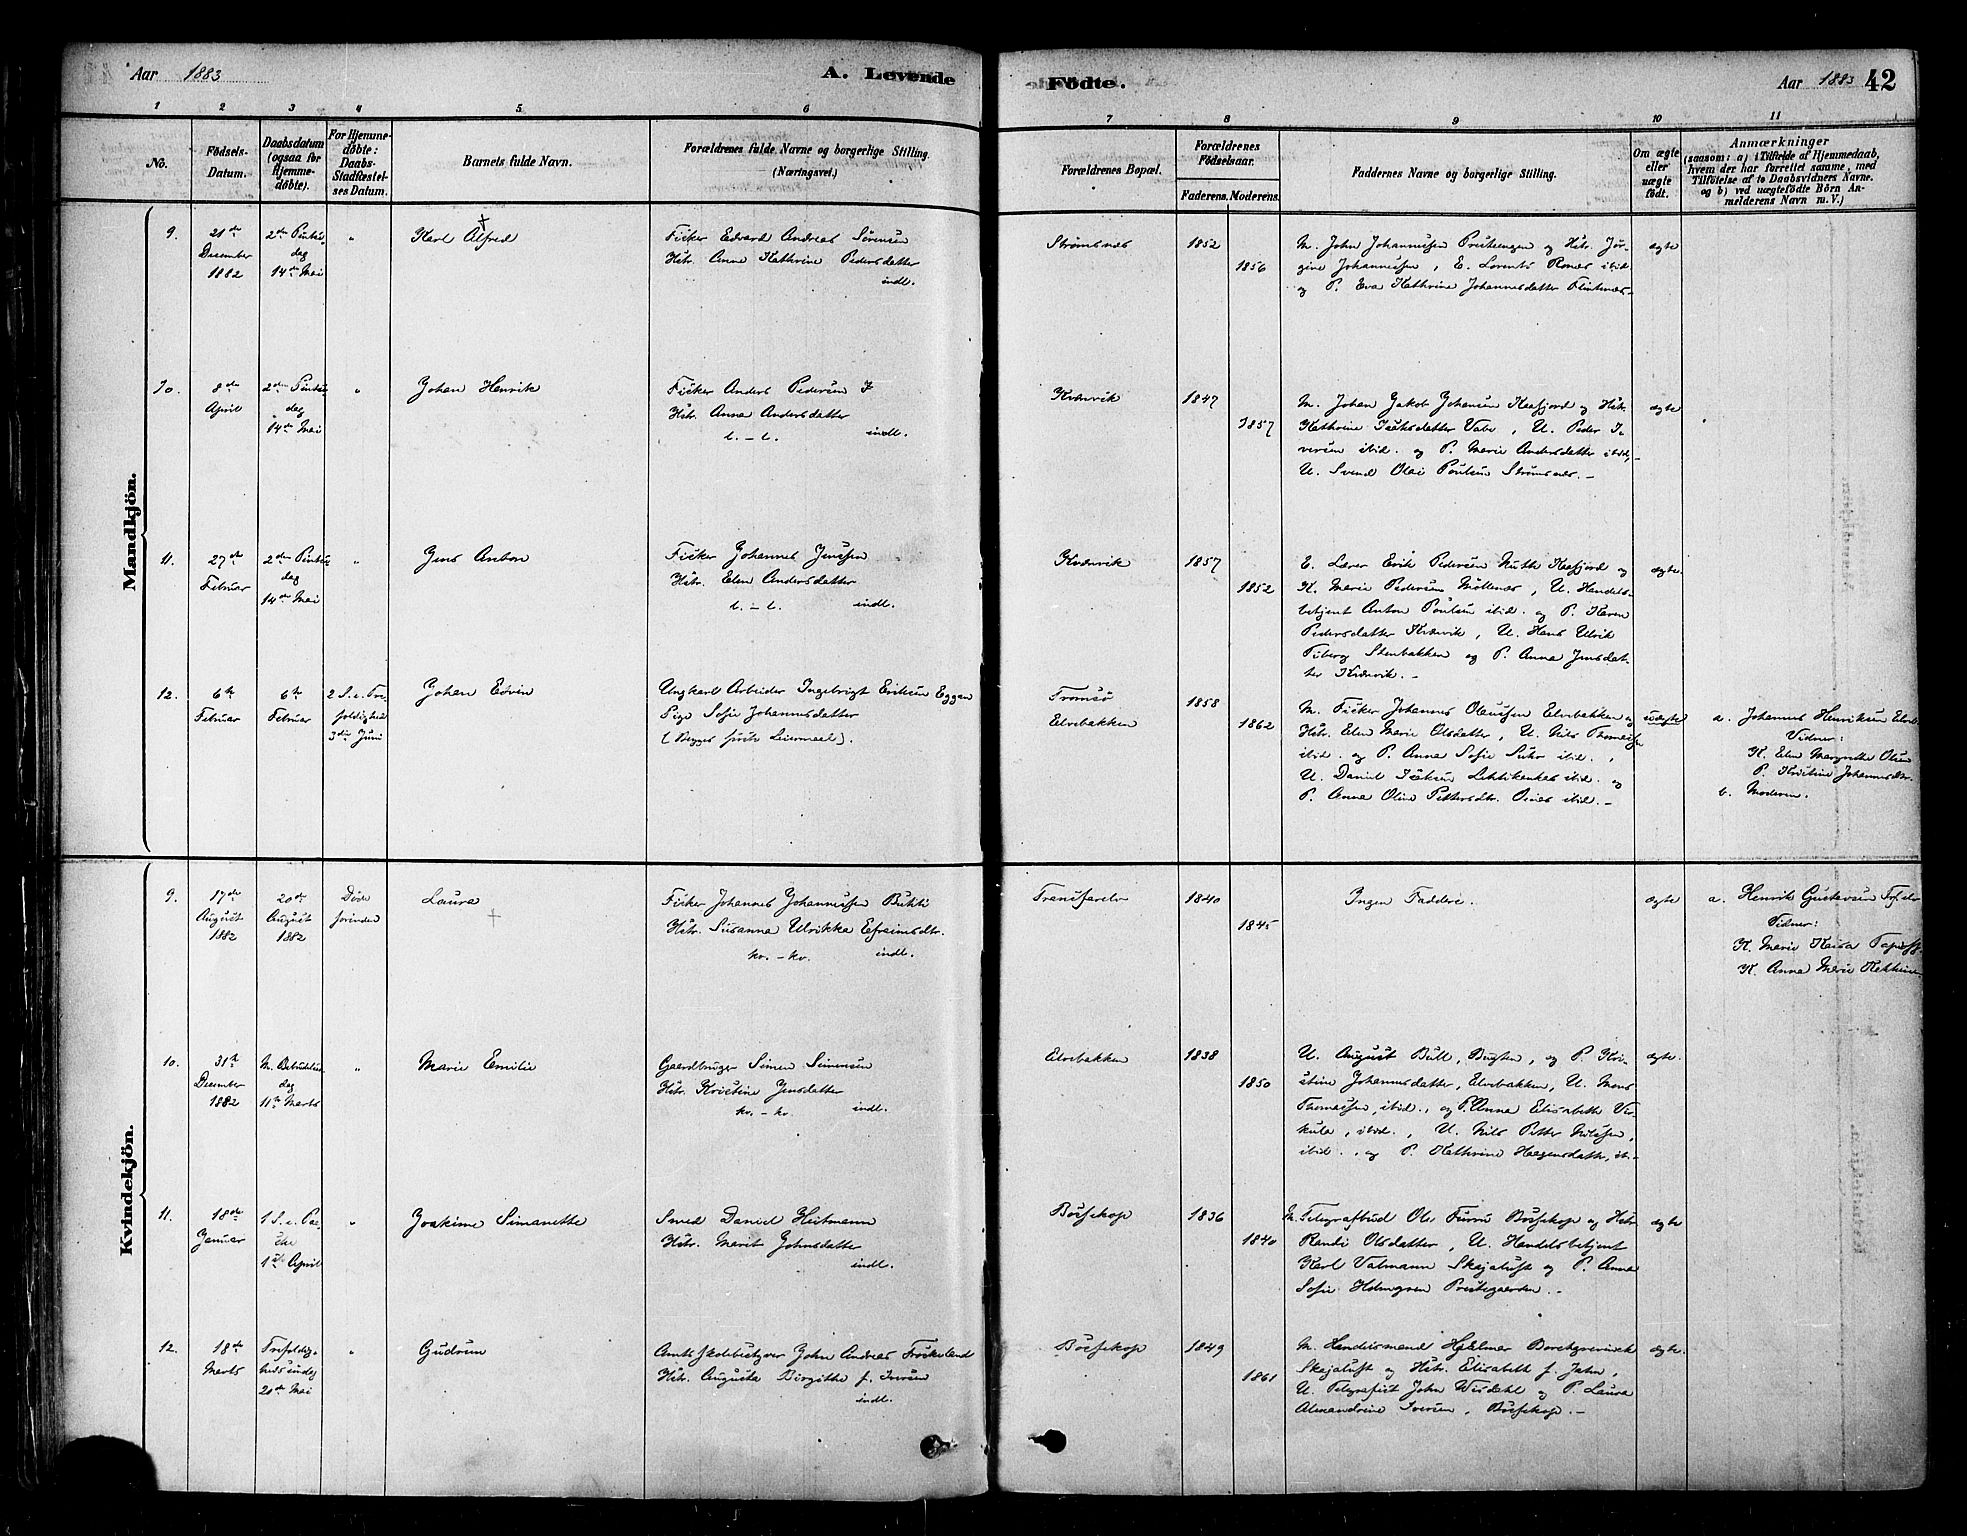 Aar 1883
A. Levende
1 2 3 4 5 6
No.
Födsels-Datum.
Daabsdatum (ogsaa for Hjemmedöbte).
For Hjemmedöbte: Daabs-Stadfæstelses Datum.
Barnets fulde Navn.
Forældrenes fulde Navne og borgerlige Stilling. (Næringsvei.)
Mandkjön.
9. 21de December 1882
2den Pintsedag 14de Mai
"
Karl Alfred
Fisker Edvard Andreas Sörensen
Hstr. Anne Kathrine Pedersdatter
indl.
10. 8de April
2den Pintsedag 14de Mai
"
Johan Henrik
Fisker Anders Pedersen
Hstr. Anna Andersdatter
l. - l. indl.
11. 27de Februar
2den Pintsedag 14de Mai
"
Jens Anton
Fisker Johannes Jenssen
Hstr. Elen Andersdatter
l. - l. indl.
12. 6te Februar
6te Februar
2 S. e. Trefoldighed 3die Juni
Johan Edvin
Ungkarl Arbeider Ingebrigt Eriksen Eggen
Pige Sofie Johannesdatter
(Begges förste Leiermaal).
Kvindekjön.
9. 17de August 1882
20de August 1882
Döde forinden
Laura
Fisker Johannes Johannessen Bukti
Hstr. Susanna Ulrikka Efraimsdtr.
kv. - kv. indl.
10. 31te December 1882
M. Bebudelsesdag 11te Marts
"
Marie Emilie
Gaardbruger Simen Simensen
Hstr. Kristine Jensdatter
kv. - kv. indl.
11. 18de Januar
1 S. e. Paaske 1ste April
"
Joakime Simanette
Smed Daniel Heitmann
Hstr. Marit Johnsdatter
indl.
12. 18de Marts
Trefoldighedssöndag 20de Mai
"
Gudrun
Amtsskolebestyrer John Andreas Fröseland
Hstr. Augusta Birgithe f. Iversen
indl.
Födte.
Aar 1883 42
7 8 9 10 11
Forældrenes Bopæl.
Forældrenes Födselsaar.
Faderens. Moderens.
Faddernes Navne og borgerlige Stilling.
Om ægte eller uægte födt.
Anmærkninger
(saasom: a) i Tilfælde af Hjemmedaab, hvem der har forrettet samme, med Tilföielse af to Daabsvidners Navne. og b) ved uægtefödte Börn Anmelderens Navn m. V.)
Strömsnes
1852
1856
M. John Johannessen Presteengen og Hstr. Jörgine Johannessen, E. Lorents Ronæs ibid.
og P. Eva Kathrine Johannesdatter Flintnæs-
ægte
Kvænvik
1847
1857
M. Johan Jakob Johansen Kaafjord og Hstr.
Kathrine Isaksdatter Vabe, U. Peder Iversen ibid. og P. Marie Andersdatter ibid,
U. Svend Olai Poulsen Strömsnæs. -
ægte
Kvænvik
1857
1852
E. Lærer Erik Pedersen Muth Kaafjord og
K. Marie Pedersen Möllenes, U. Handelsbetjent Anton Poulsen ibid. og P. Karen
Pedersdatter Kvænvik, U. Hans Ulrik
Fiberg Stenbakken og P. Anna Jensdatter Kvænvik. -
ægte.
Tromsö
Elvebakken
1858
1862
M. Fisker Johannes Olaussen Elvebakken og
Hstr. Elen Marie Olsdatter, U. Nils Thomassen
ibid. og P. Anna Sofie Suhr ibid.,
U. Daniel Isaksen Lehtikenkes ibid. og
P. Anna Oline Pettersdtr. Osnes ibid. -
uægte
a. Johannes Henriksen Elveb.
Vidner:
K. Elen Margrethe Olsen
P. Kristine Johannesdtr.
b. Moderen.
Transfarelv
1840
1845
Ingen Faddere.
ægte
a. Henrik Gustavsen Trf.elv
Vidner:
K. Marie Kaisa
K. Anna Marie
Elvebakken
1838
1850
U. August Bull, Bugten, og P. Kristine Johannesdatter, Elvebakken, U. Mons
Thomassen, ibid., og P. Anna Elisabeth Verkula, ibid., U. Nils Petter Nilssen,
ibid., og P. Kathrine Haagensdatter, ib-
ægte.
Bossekop
1836
1840
M. Telegrafbud Ole Furru Bossekop og Hstr.
Randi Olsdatter, U. Handelsbetjent
Karl Valmann Skajaluft og P. Anna
Sofie Holmgren Prestegaarden. -
ægte
Bossekop
1849
1861
M. Handelsmand Hjalmar Borchgrevinck
Skajaluft og Hstr. Elisabeth f. Jahn,
U. Telegrafist John Wisdahl og P. Laura
Alexandrine Iversen, Bossekop. -
ægte.